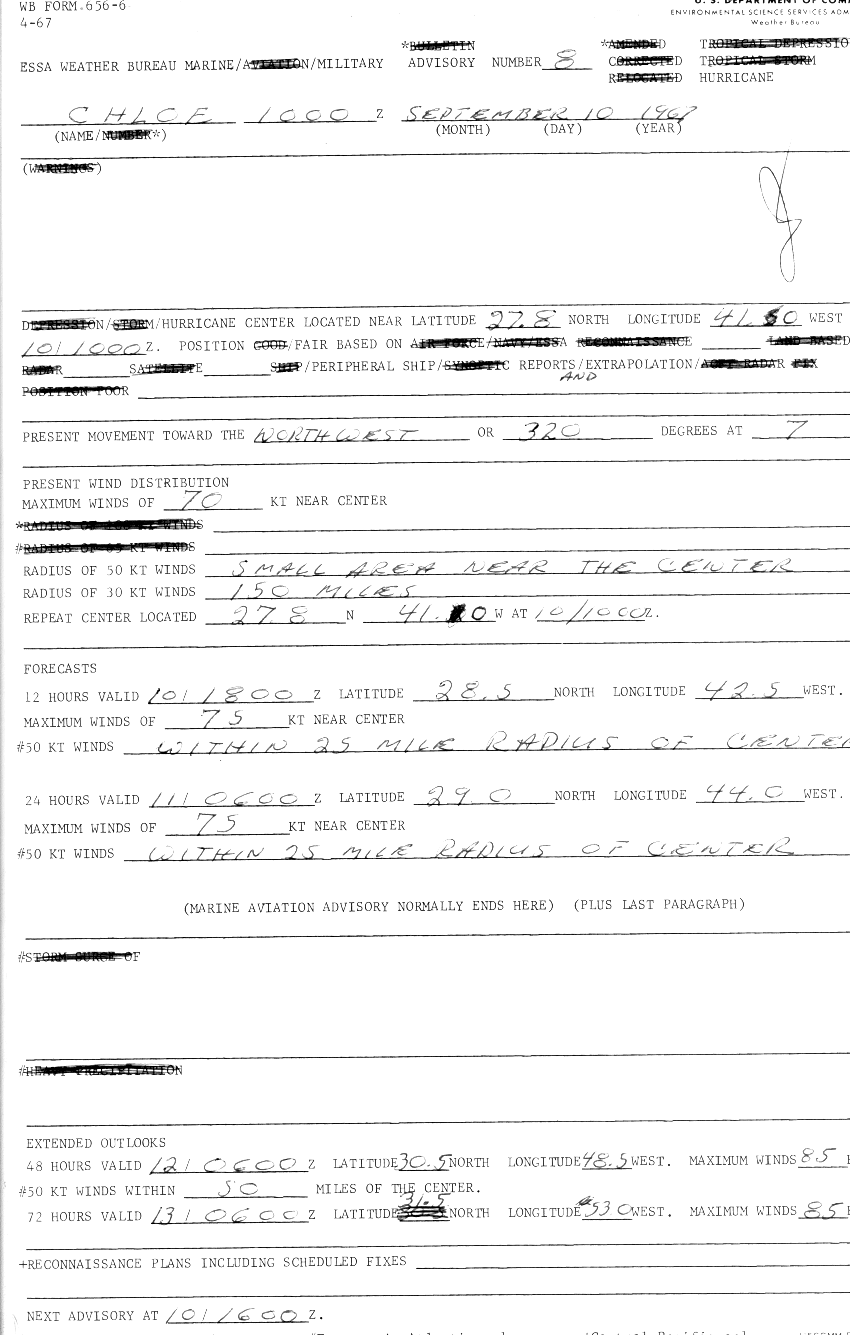 WB FORM 656-6
4-67
U. S. DEPARTMENT OF COM
ENVIRONMENTAL SCIENCE SERVICES ADM
Weather Bureau
*BULLETIN *AMENDED TROPICAL DEPRESSIO
ESSA WEATHER BUREAU MARINE/AVIATION/MILITARY ADVISORY NUMBER 8 CORRECTED TROPICAL STORM
RELOCATED HURRICANE
CHLOE 1000 Z SEPTEMBER 10 1967
(NAME/NUMBER*) (MONTH) (DAY) (YEAR)
(WARNINGS)
DEPRESSION/STORM/HURRICANE CENTER LOCATED NEAR LATITUDE 27.8 NORTH LONGITUDE 41.0 WEST
10/1000Z. POSITION GOOD/FAIR BASED ON AIR FORCE/NAVY/ESSA RECONNAISSANCE LAND BASED
RADAR SATELLITE SHIP/PERIPHERAL SHIP/SYNOPTIC REPORTS/EXTRAPOLATION/ACFT RADAR FIX
AND
POSITION POOR
PRESENT MOVEMENT TOWARD THE NORTHWEST OR 320 DEGREES AT 7
PRESENT WIND DISTRIBUTION
MAXIMUM WINDS OF 70 KT NEAR CENTER
*RADIUS OF 100 KT WINDS
#RADIUS OF 65 KT WINDS
RADIUS OF 50 KT WINDS SMALL AREA NEAR THE CENTER
RADIUS OF 30 KT WINDS 150 MILES
REPEAT CENTER LOCATED 27.8 N 41.0 W AT 10/1000Z.
FORECASTS
12 HOURS VALID 10/1800 Z LATITUDE 28.5 NORTH LONGITUDE 42.5 WEST.
MAXIMUM WINDS OF 75 KT NEAR CENTER
#50 KT WINDS WITHIN 25 MILE RADIUS OF CENTE
24 HOURS VALID 11/0600 Z LATITUDE 29.0 NORTH LONGITUDE 44.0 WEST.
MAXIMUM WINDS OF 75 KT NEAR CENTER
#50 KT WINDS WITHIN 25 MILE RADIUS OF CENTER
(MARINE AVIATION ADVISORY NORMALLY ENDS HERE) (PLUS LAST PARAGRAPH)
#STORM SURGE OF
#HEAVY PRECIPITATION
EXTENDED OUTLOOKS
48 HOURS VALID 12/0600 Z LATITUDE 30.5 NORTH LONGITUDE 48.5 WEST. MAXIMUM WINDS 85
#50 KT WINDS WITHIN 50 MILES OF THE CENTER.
31.5
72 HOURS VALID 13/0600 Z LATITUDE NORTH LONGITUDE 53.0 WEST. MAXIMUM WINDS 85
+RECONNAISSANCE PLANS INCLUDING SCHEDULED FIXES
NEXT ADVISORY AT 10/1600 Z.